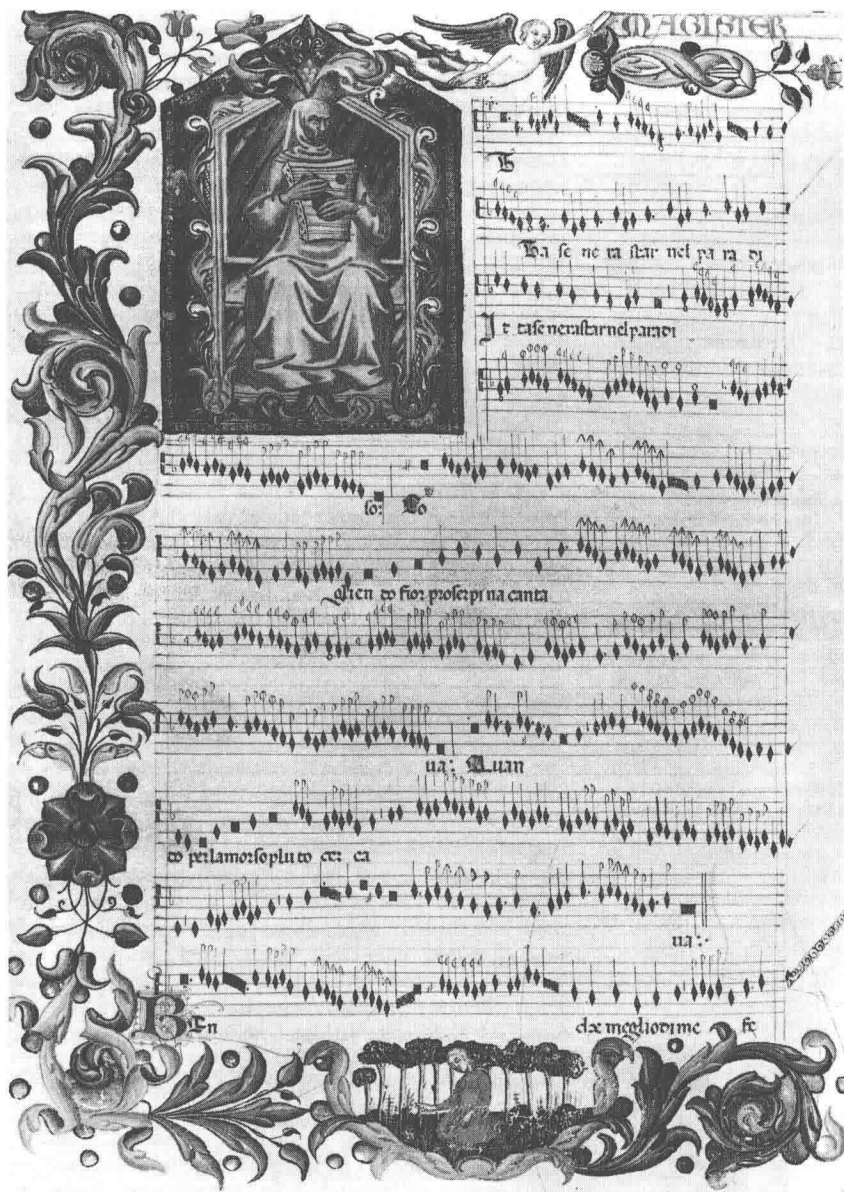 MAGISTER
Ta se ne ra star nel pa ra di
It tase nerastarnelparadi
so: Co
glien do fior proserpi na canta
ua: Auan
do perlamorsopluto cer ca
ua:
BEn che megliodime fe